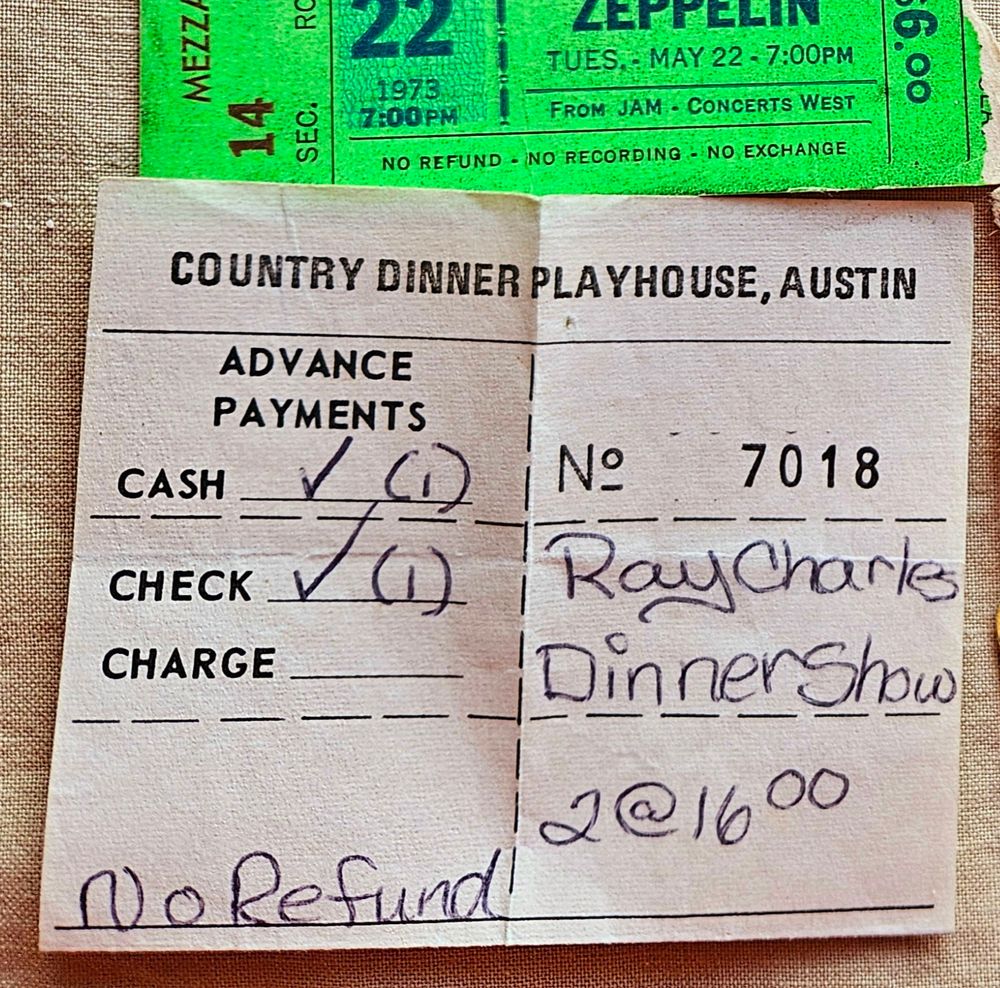 MEZZA
14
RO
SEC.
22
1973
7:00PM
ZEPPELIN
TUES. - MAY 22 - 7:00PM
FROM JAM - CONCERTS WEST
NO REFUND - NO RECORDING - NO EXCHANGE
$6.00
COUNTRY DINNER PLAYHOUSE, AUSTIN
ADVANCE
PAYMENTS
CASH ✓ (1)
CHECK ✓ (1)
CHARGE
Nº 7018
Ray Charles
Dinner Show
2@16 00
No Refund